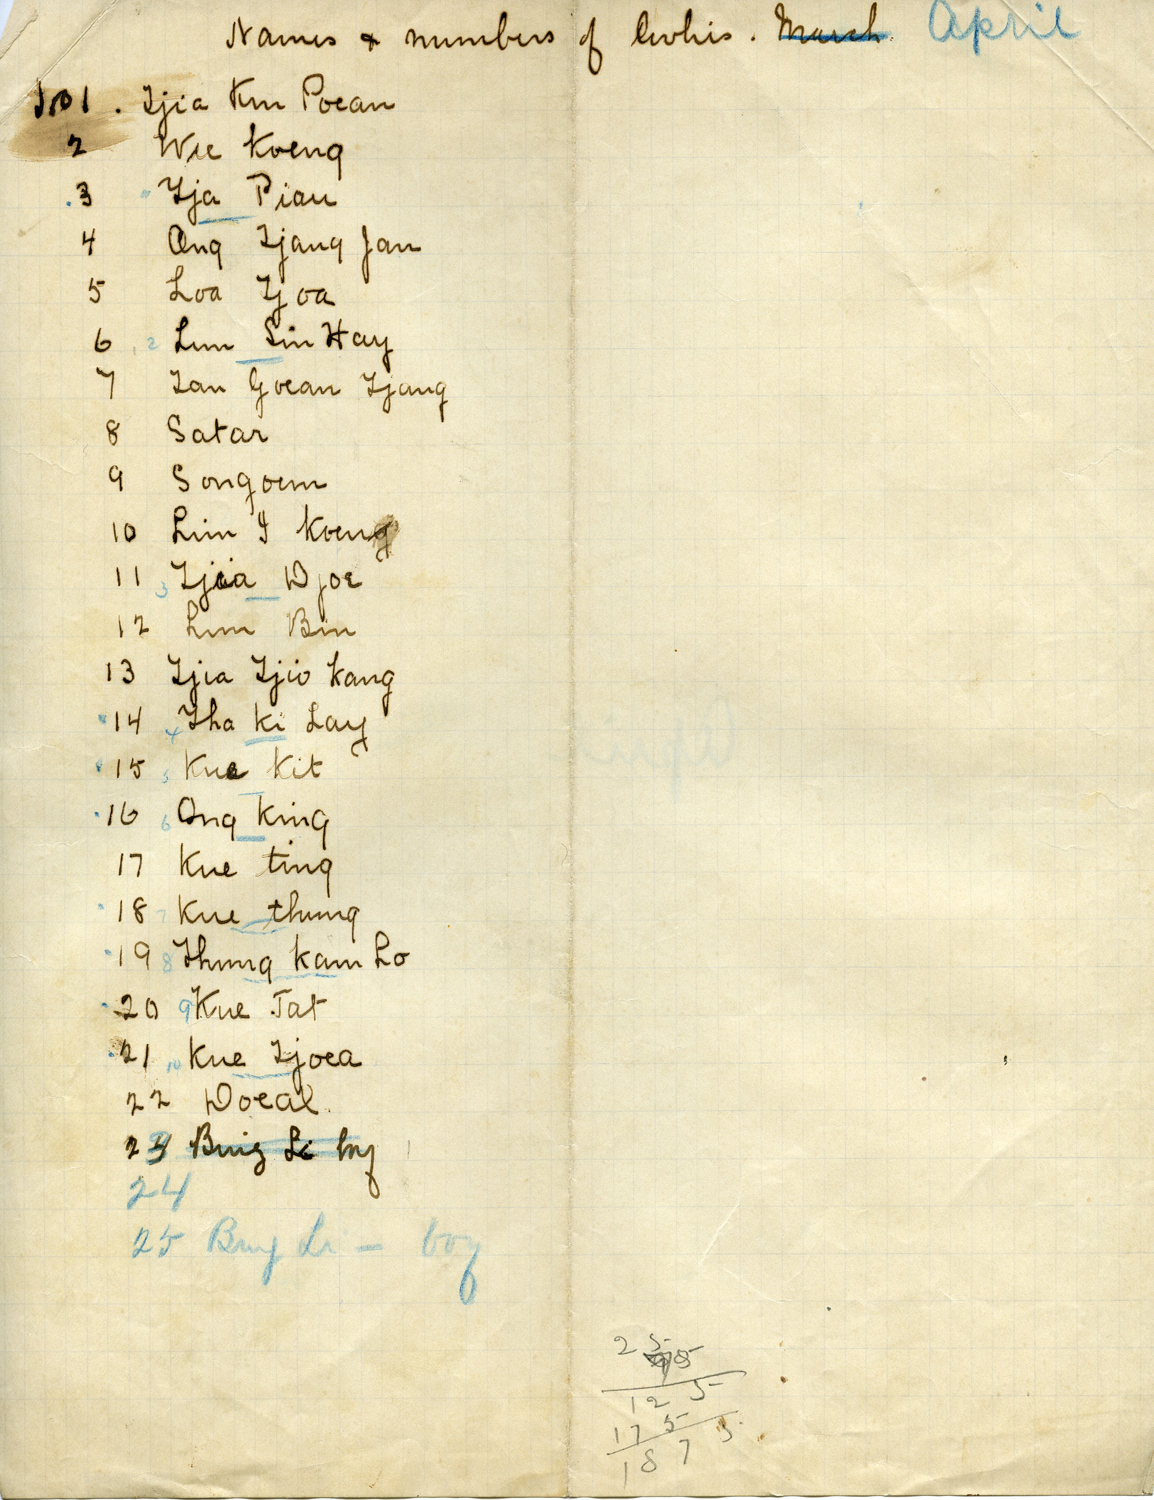 Names & numbers of Coolies. March April
No 1. Tjia Kim Poean
2 Wee Koeng
3 Tja Pian
4 Ong Tjang Jan
5 Loa Tjoa
6 2 Lim Sin Hay
7 Tan Goean Tjang
8 Satar
9 Songoem
10 Lim I Koeng
11 3 Tjia Djoe
12 Lim Bin
13 Tjia Tjio Kang
14 4 Tha Ki Lay
15 5 Kue Kit
16 6 Ong King
17 Kue ting
18 7 Kue thung
19 8 Thung Kam Lo
20 9 Kue Tat
21 10 Kue Tjoea
22 Doeal
23 Li boy
24
25 Li - boy
25
75
125
175
1875
April